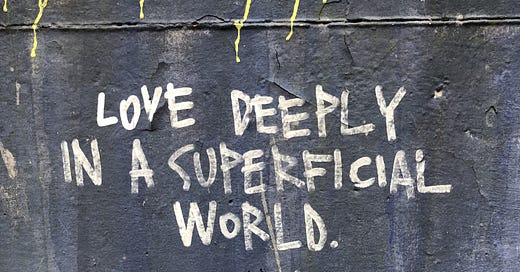 LOVE DEEPLY
IN A SUPERFICIAL
WORLD.